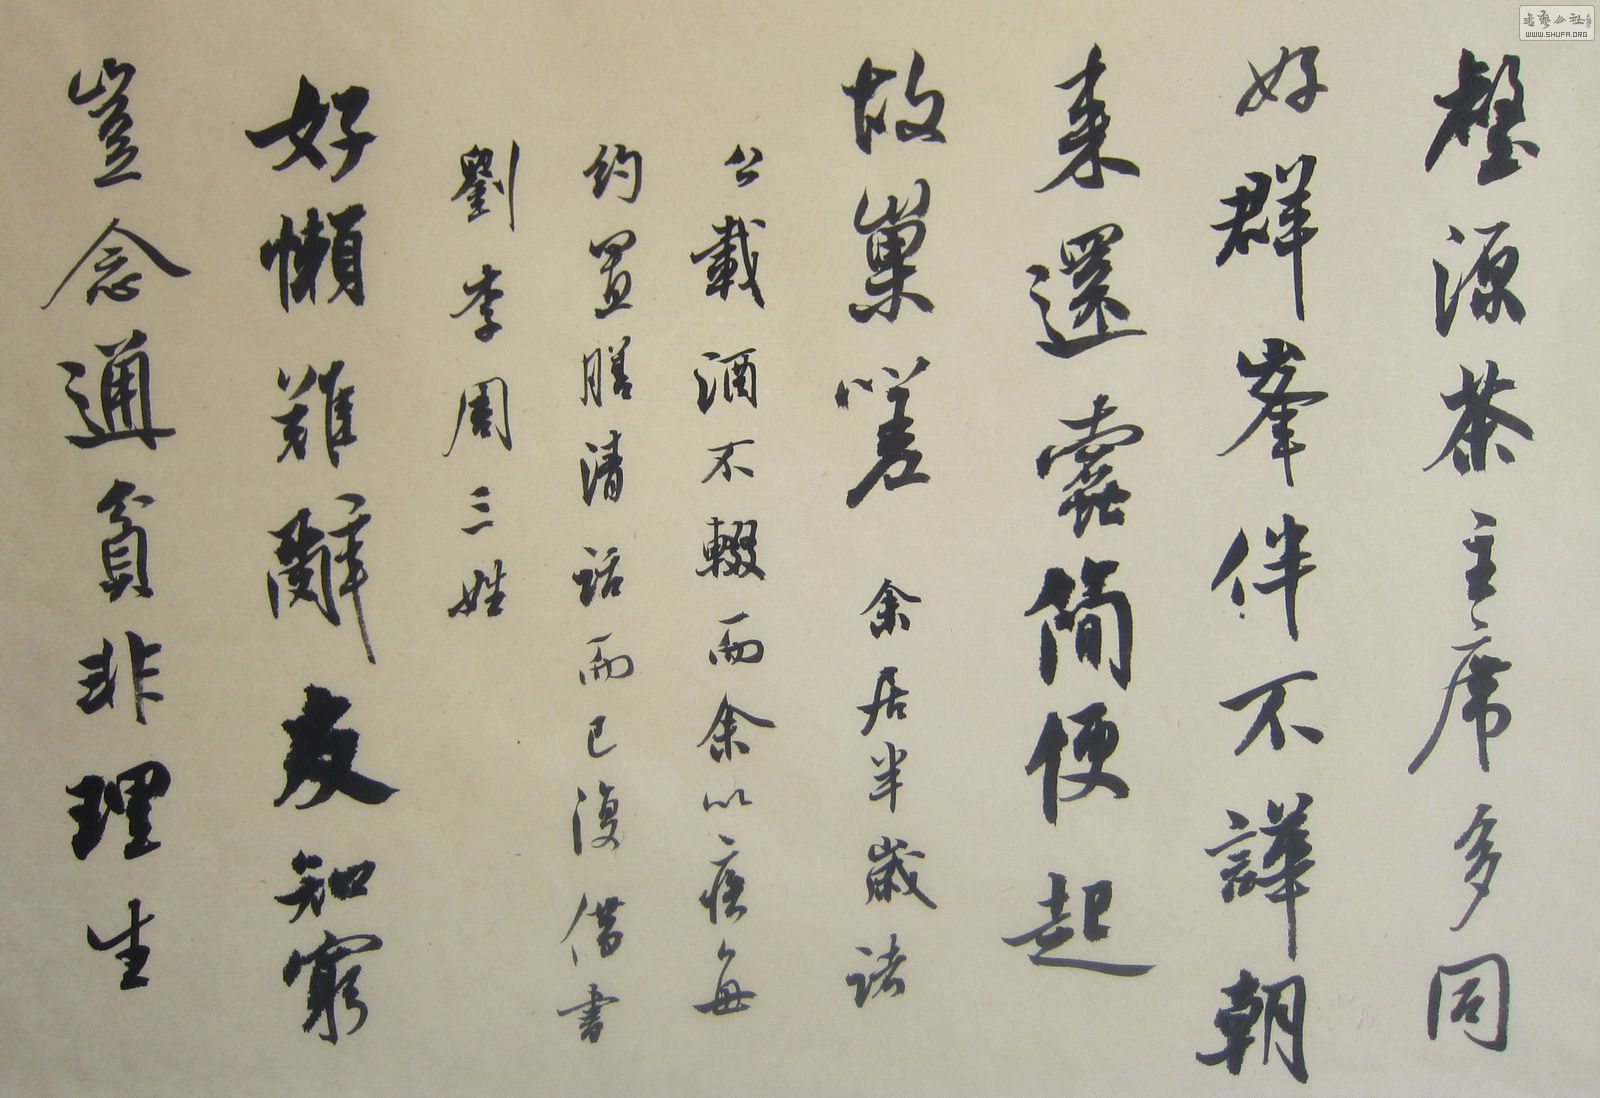 壑源茶主席多同
好群峯伴不譁朝
来還蠹簡便起
故巢嗟 余居半歲諸
公載酒不輟而余以疾每
約置膳清話而已復借書
劉李周三姓
好懶難辭友知窮
豈念通貧非理生
書藝公社
WWW.SHUFA.ORG